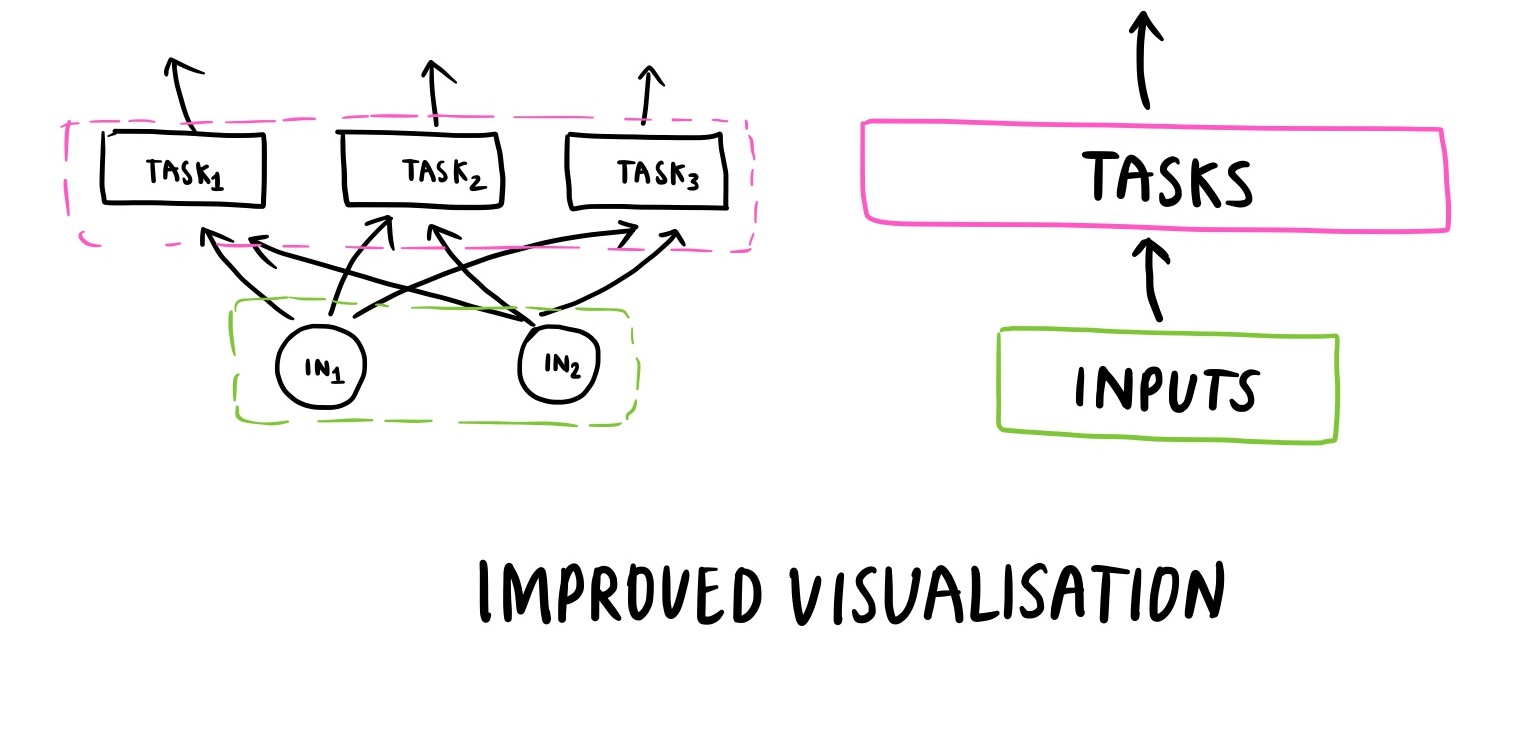 TASK₁ TASK₂ TASK₃
TASKS
IN₁ IN₂
INPUTS
IMPROVED VISUALISATION